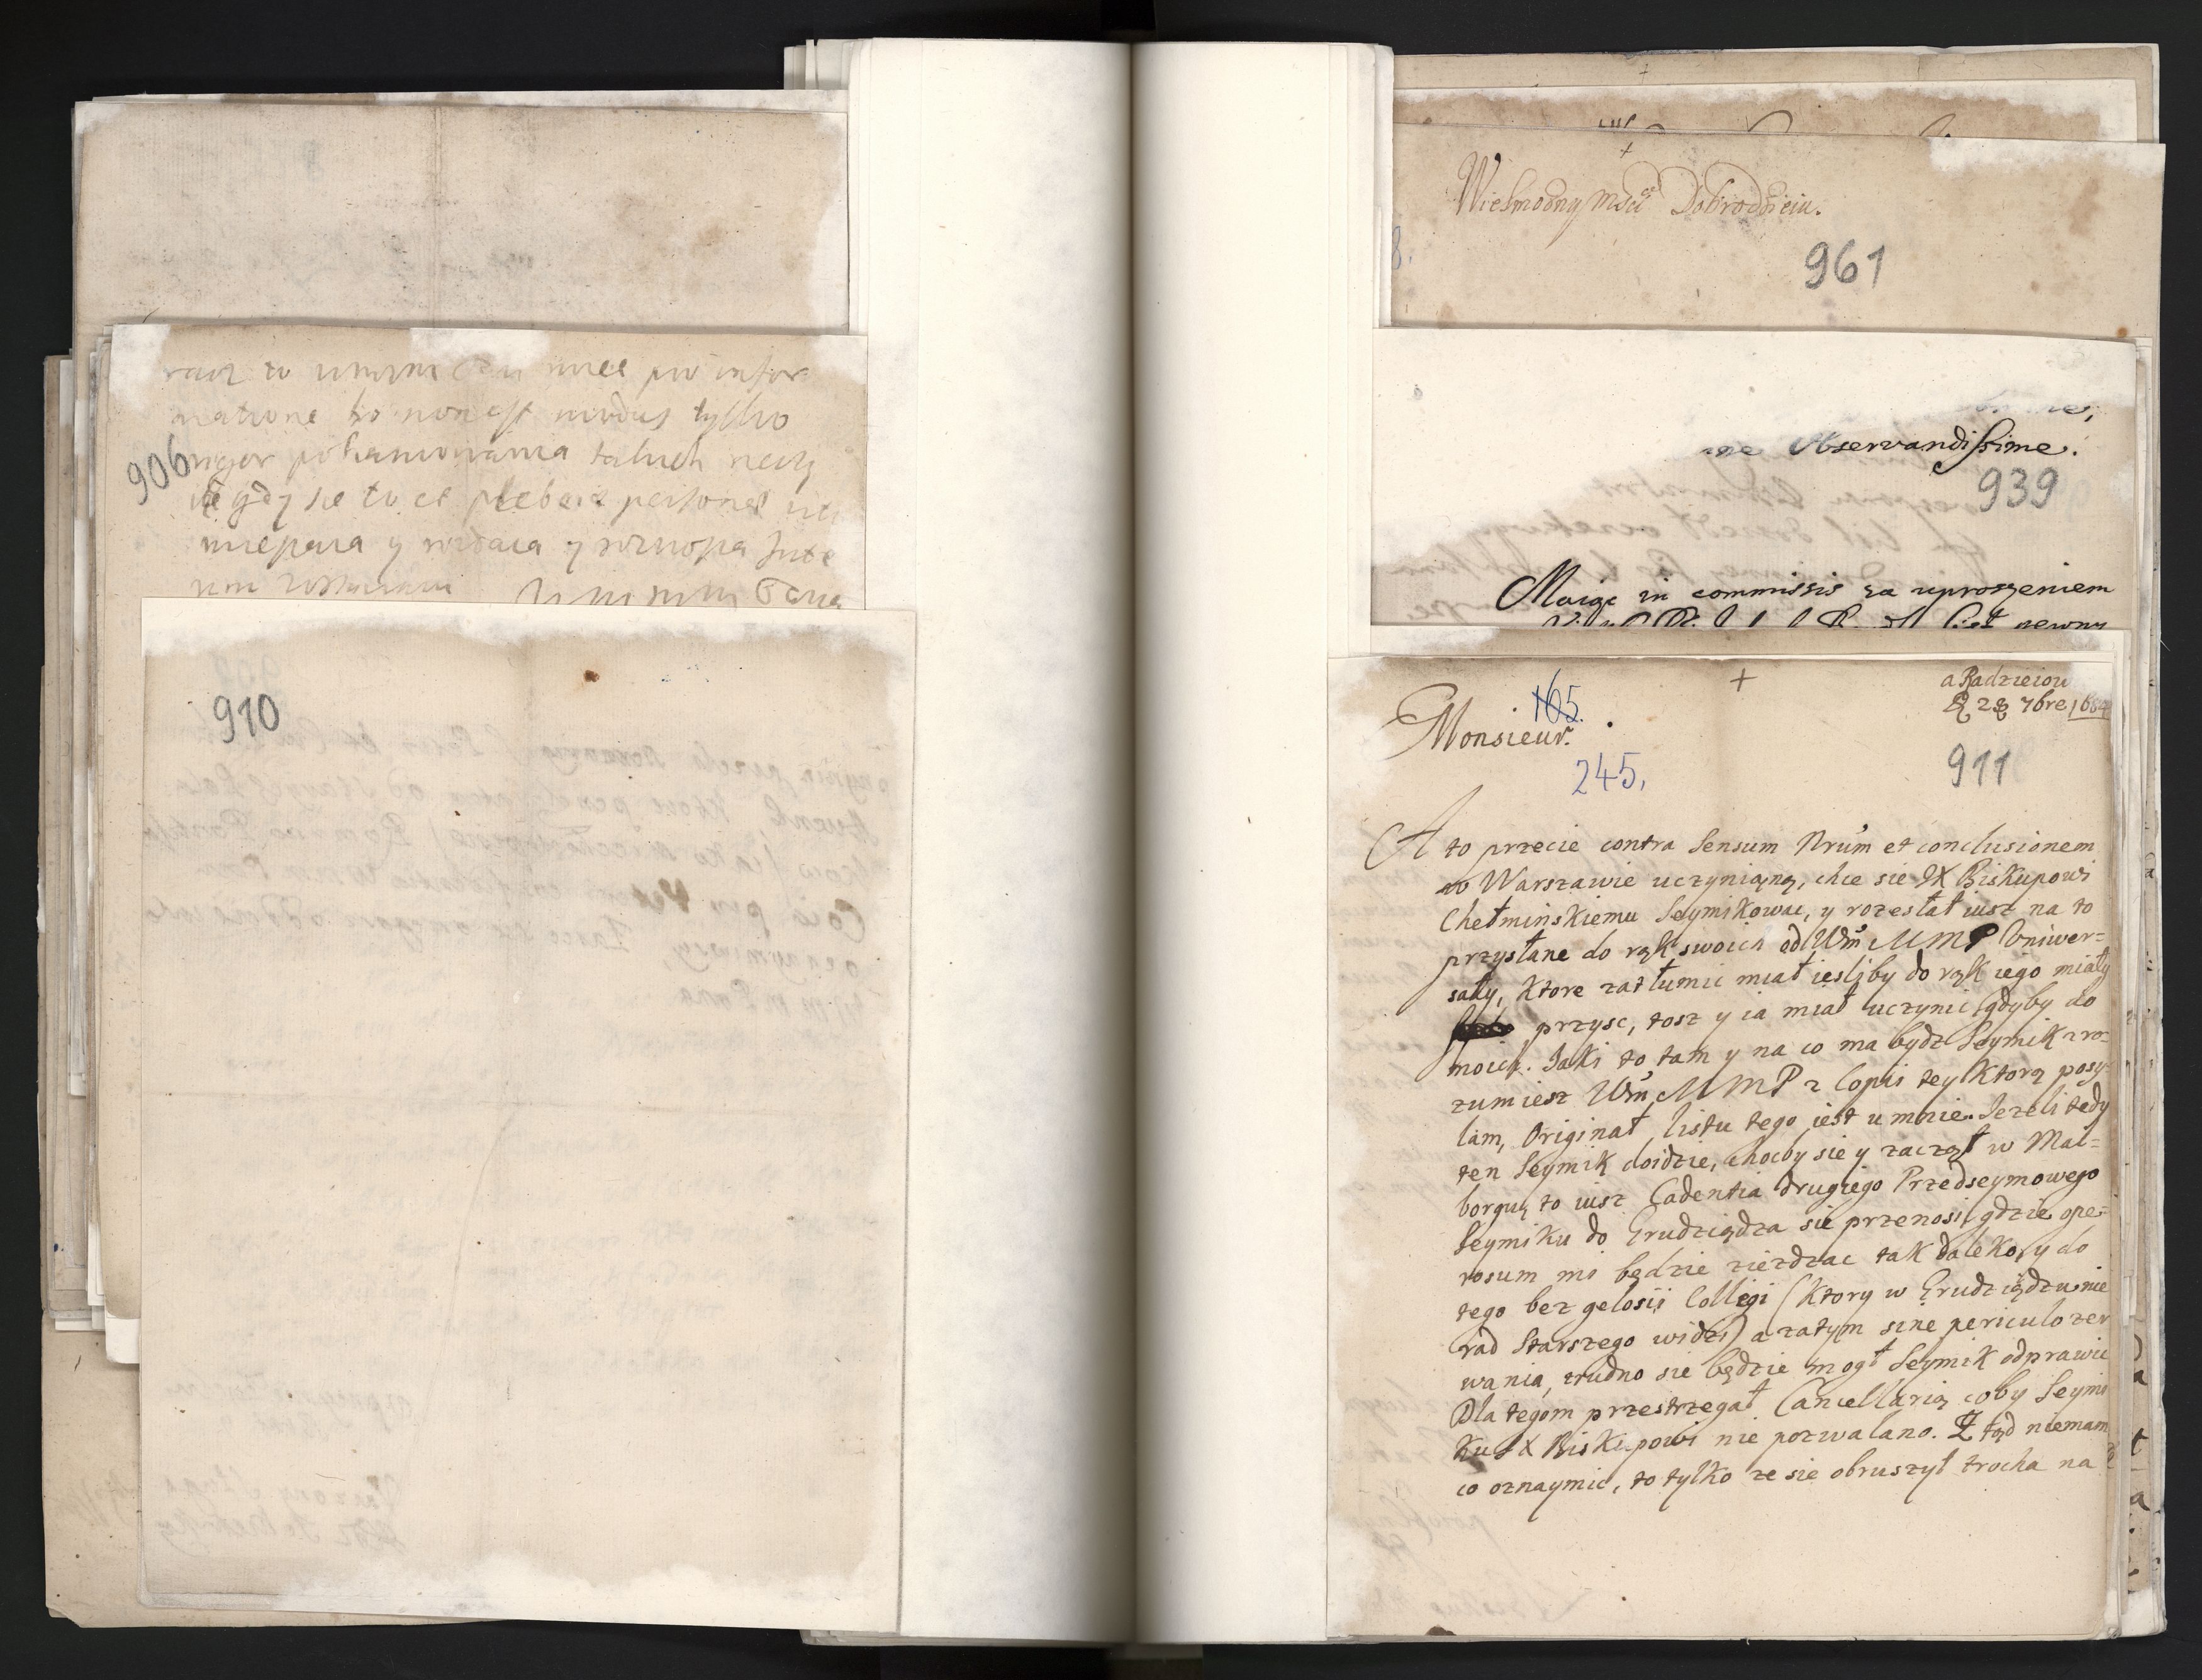 906
matione bo non est modus tylko
rigor pohamowania takich rzeczy
gdy sie to et plebeiae personae
910
Wielmozny Mści Dobrodzieiu.
961
Observandissime.
939
Maiąc in commissis za uproszeniem
+
a Radzieiow
28 7bre 1684
165.
Monsieur.
245.
911
A to przecie contra sensum Nrum et conclusionem
w Warszawie uczynioną, chce sie JX Biskupowi
Chełminskiemu Seymikowac, y rozesłał iusz na to
przysłane do rąk swoich od Wm MMP Uniwer=
sały, Ktore zatłumic miał iesliby do rąk iego miały
przysc, tosz y ia miał uczynic gdyby do
moich. Jaki to tam y na co ma bydz Seymik zro=
zumiesz Wm MMP z Copii tey Ktorą posy=
lam, Originał listu tego iest u mnie. Jezeli tedy
ten Seymik doidzie, choćby sie y zaczął w Mal=
borgu, to iusz Cadentia drugiego Przedseymowego
Seymiku do Grudziądza sie przenosi, gdzie ope=
rosum mi będzie ziezdzac tak daleko, y do
tego bez gelosii Collegi (Ktory w Grudziądzu nie
rad Starszego widzi) a zatym sine periculo zer
wania, trudno sie będzie mogł Seymik odprawic
Dla tegom przestrzegał Cancellarią coby Seymi
Ku JX Biskupowi nie pozwalano. Z tąd niemam
co oznaymic, to tylko ze sie obruszył trocha na